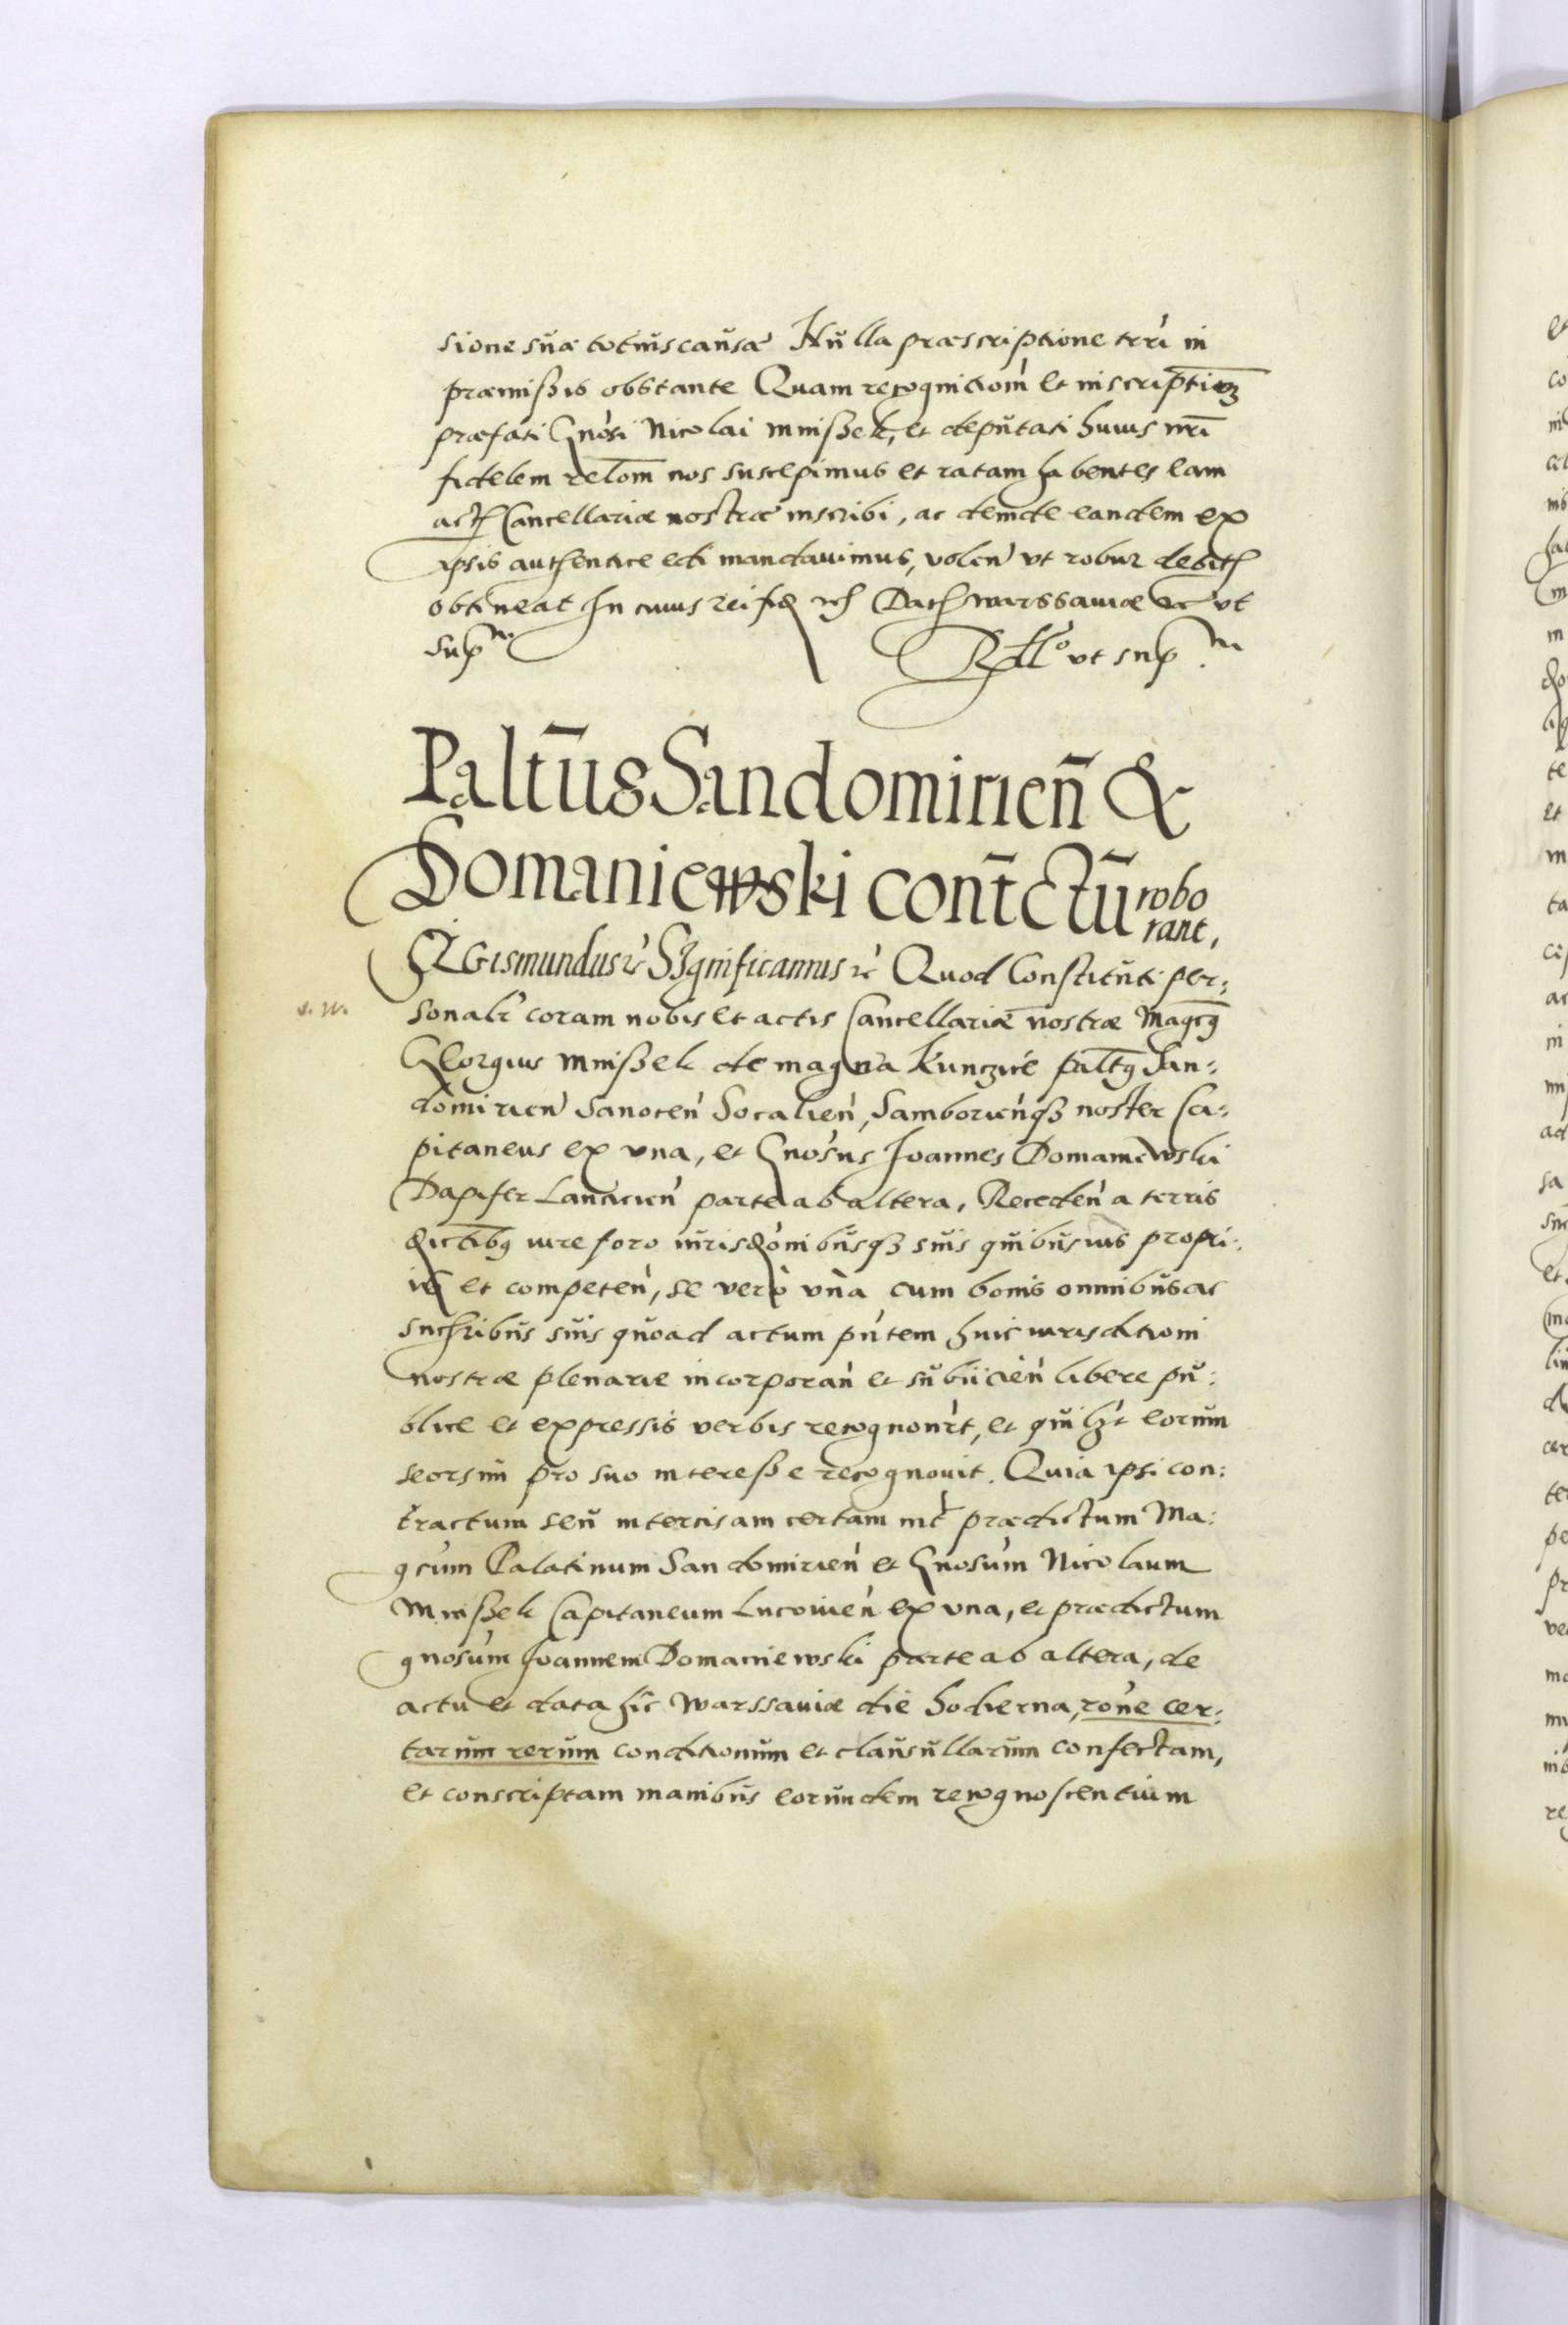 sione suæ totius causæ Nulla præscriptione trrī in
præmissis obstante Quam recognitiom̄ et inscriptiem
præfati Gnosi Nicolai Mnissek, et deputati huius nrī
fidelem relom̄ nos suscepimus et ratam habentes eam
act Cancellariæ nostræ inscribi, ac deinde eandem ex
ipsis authentice edi mandavimus, volen̄ ut robur debit
obtineat In cuius rei fid Dat Warssaviæ ut
sup
ut sup.
Paltūs Sandomirien̄ &
Domaniewski cont̄ctū robo
rant,
SIGismundus &c Significamus &c Quod Constituti per:
sonalr coram nobis et actis Cancellariæ nostræ Magcus
Georgius Mnissek de magna Kunczice palt̄us San:
domirien̄ Sanocen̄ Socalien̄, Samborien̄q3 noster Ca:
pitaneus ex una, et Gnosus Joannes Domaniewski
Dapifer Lancicien̄ parte ab altera, Receden̄ a terris
dictibus iure foro iurisdōnibusq3 suis quibusvis propri:
is et competen̄, se vero una cum bonis omnibus ac
succribus suis quoad actum pn̄tem huic iurisditioni
nostræ plenarie incorporan̄ et subiicien̄ libere pu:
blice et expressis verbis recognonr̄t, et quilzt eorum
seorsim pro suo interesse recognovit. Quia ipsi con:
tractum seu intercisam certam int̄ prædictum Ma:
gcum Palatinum Sandomirien̄ et Gnosum Nicolaum
Mnissek Capitaneum Lucovien̄ ex una, et prædictum
gnosum Joannem Domaniewski parte ab altera, de
actu et data hic Warssaviæ die hodierna, rōne cer:
tarum rerum conditionum et clausullarum confectam,
et conscriptam manibus eorundem recognoscentium